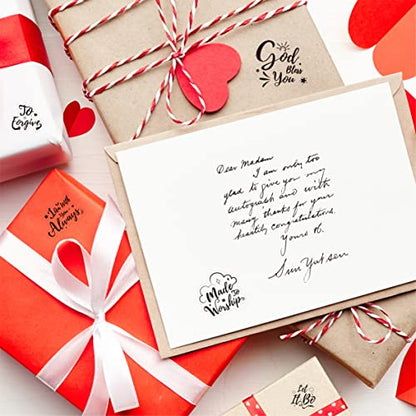 God
Bless
You
To
Forgive
I Am With
You
Always
Dear Madam
I am only too
glad to give you my
autograph and with
many thanks for your
heartily congratulations.
Yours ol.
Sun Yat sen
Made
To
Worship
Let
It Be